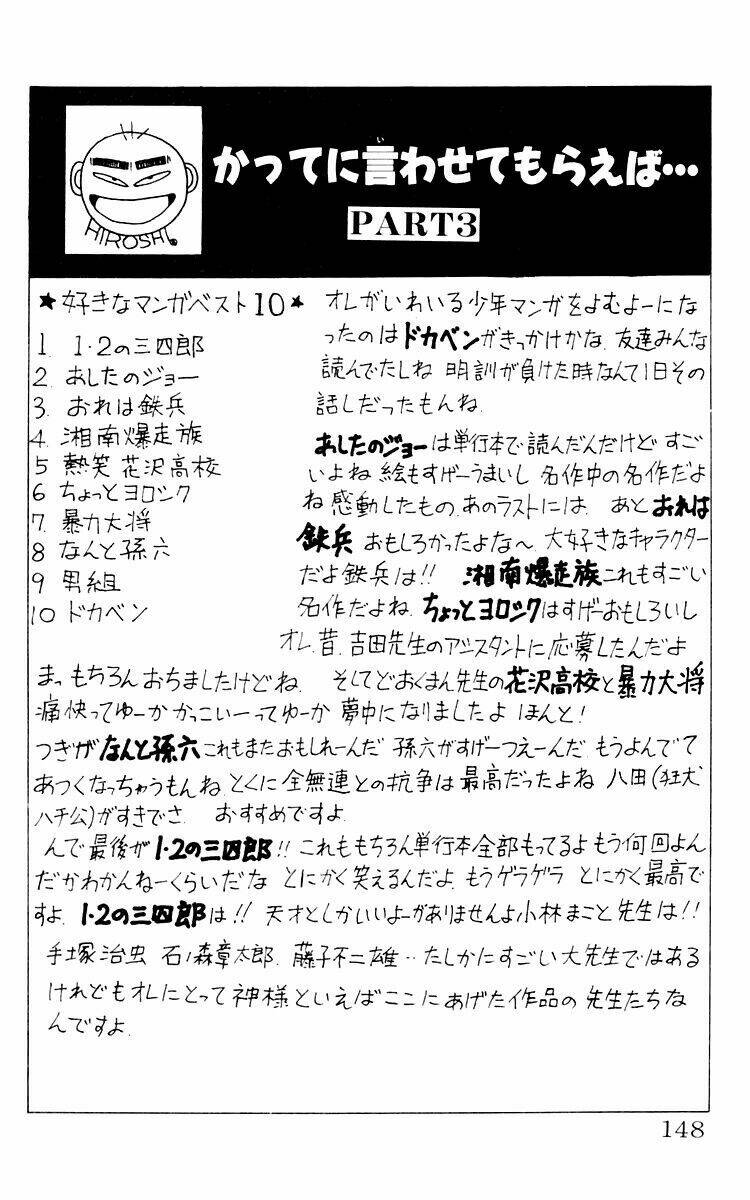 かってに言わせてもらえば…
PART3
HIROSHI.
★好きなマンガベスト10★
1 1・2の三四郎
2 あしたのジョー
3 おれは鉄兵
4 湘南爆走族
5 熱笑 花沢高校
6 ちょっとヨロシク
7 暴力大将
8 なんと孫六
9 男組
10 ドカベン
オレがいわいる少年マンガをよむよーにな
ったのはドカベンがきっかけかな 友達みんな
読んでたしね 明訓が負けた時なんて1日その
話しだったもんね
あしたのジョーは単行本で読んだんだけど すご
いよね 絵もすげーうまいし 名作中の名作だよ
ね 感動したもの あのラストには あと おれは
鉄兵 おもしろかったよな〜 大好きなキャラクター
だよ鉄兵は!! 湘南爆走族これもすごい
名作だよね ちょっとヨロシクはすげーおもしろいし
オレ 昔 吉田先生のアシスタントに応募したんだよ
まっ もちろん おちましたけどね そしてどおくまん先生の花沢高校と暴力大将
痛快ってゆーか かっこいーってゆーか 夢中になりましたよ ほんと!
つぎがなんと孫六これもまたおもしれーんだ 孫六がすげーつえーんだ もうよんでて
あつくなっちゃうもんね とくに 全無連との抗争は最高だったよね 八田(狂犬
ハチ公)がすきでさ おすすめですよ
んで最後が1・2の三四郎!! これももちろん単行本全部もってるよ もう何回よん
だかわかんねーくらいだな とにかく笑えるんだよ もうゲラゲラ とにかく最高で
すよ 1・2の三四郎は!! 天才としかいいよーがありませんよ小林まこと先生は!!
手塚治虫 石ノ森章太郎 藤子不二雄‥たしかにすごい大先生ではある
けれどもオレにとって神様といえばここにあげた作品の先生たちな
んですよ
148